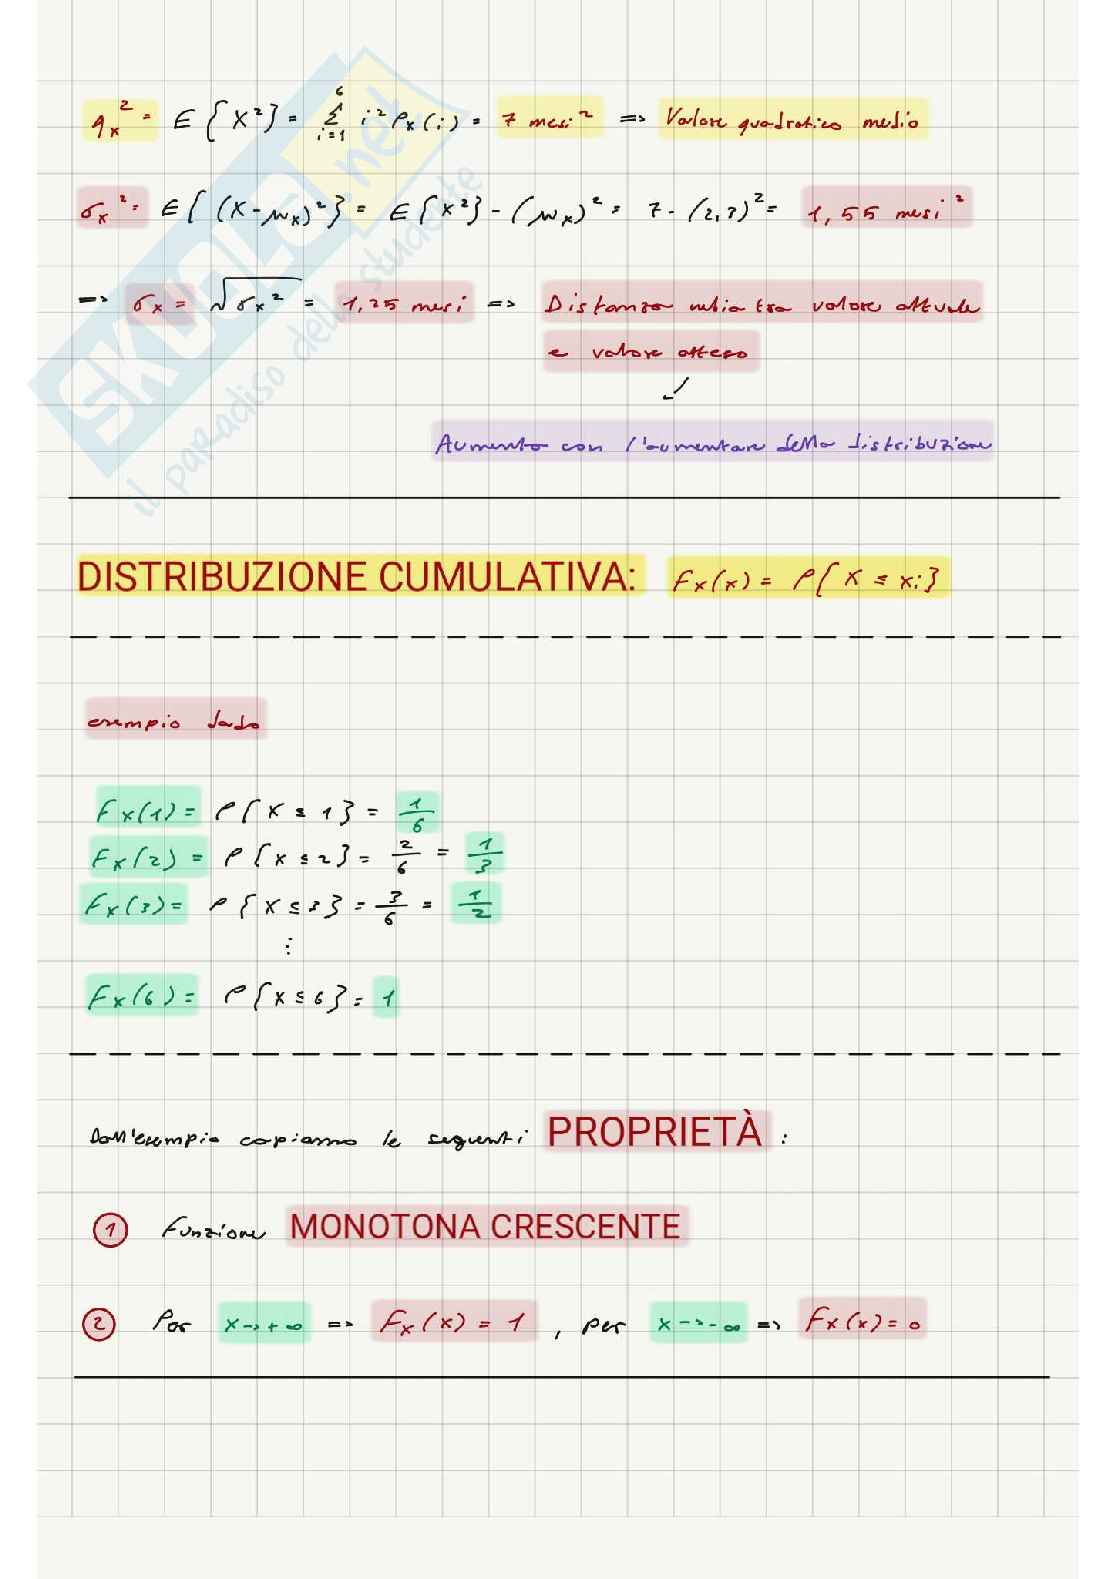 q_x² = E{X²} = Σ_{i=1}^{6} i² P_X(i) = 7 mesi² => Valore quadratico medio
σ_x² = E{(X-μ_X)²} = E{X²} - (μ_X)² = 7 - (2,3)² = 1,55 mesi²
=> σ_X = √σ_X² = 1,25 mesi => Distanza media tra valore attuale
e valore atteso
↙
Aumenta con l'aumentare della distribuzione
DISTRIBUZIONE CUMULATIVA: F_X(x) = P{X ≤ xi}
esempio dado
F_X(1) = P{X ≤ 1} = 1/6
F_X(2) = P{X ≤ 2} = 2/6 = 1/3
F_X(3) = P{X ≤ 3} = 3/6 = 1/2
⋮
F_X(6) = P{X ≤ 6} = 1
Dall'esempio capiamo le seguenti PROPRIETÀ :
1 Funzione MONOTONA CRESCENTE
2 Per x -> +∞ => F_X(x) = 1 , per x -> -∞ => F_X(x) = 0
SKUOLA.net
il paradiso dello studente